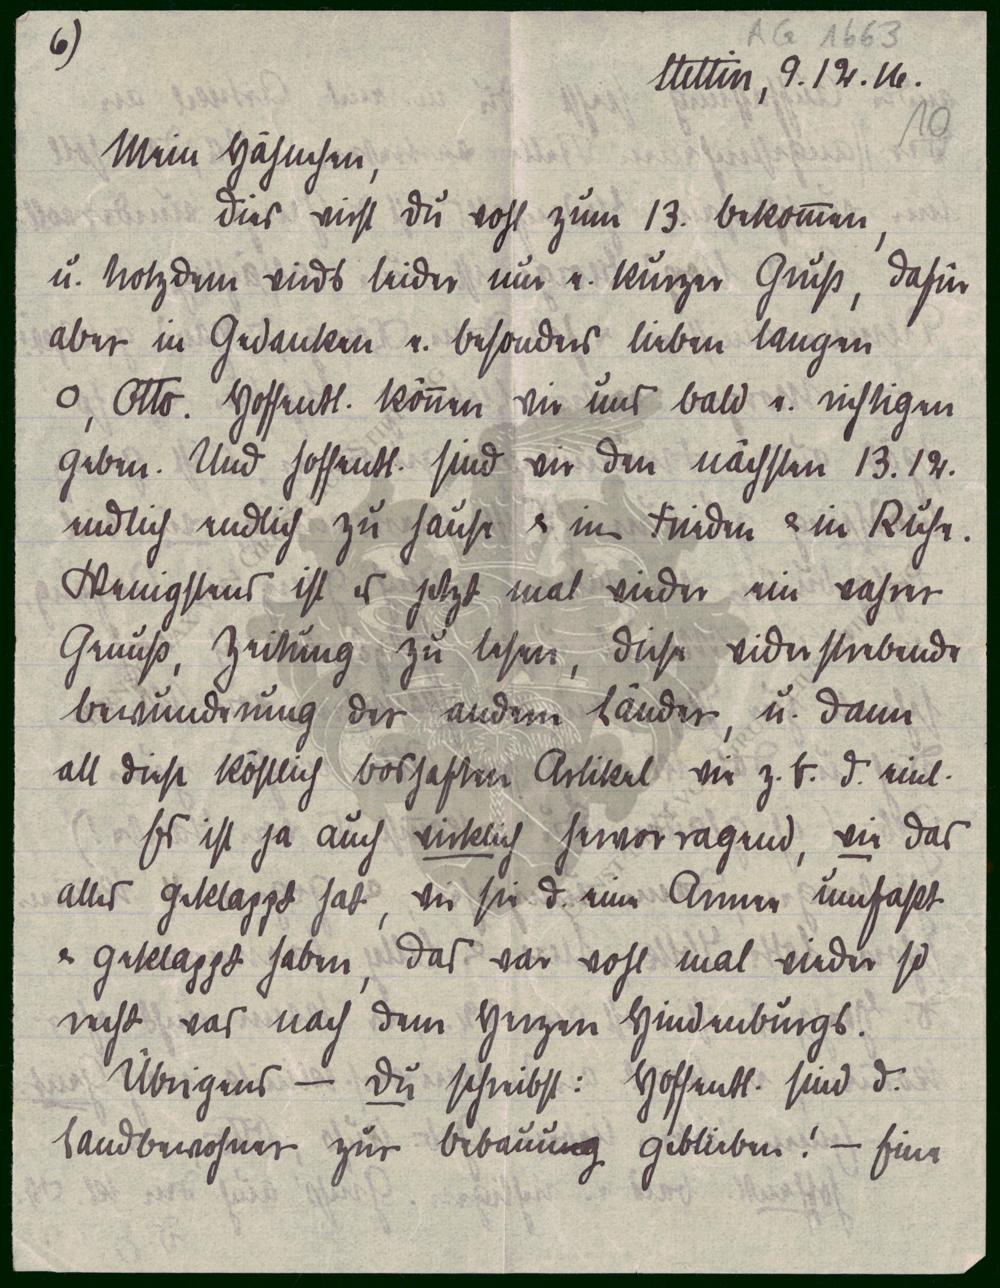 6)
AG 1663
Stettin, 9.12.16.
10
Mein Hähnchen,
Dies wirst Du wohl zum 13. bekom̅en,
u. trotzdem wirds leider nur e. kurzer Gruß, dafür
aber in Gedanken e. besonders lieben langen
O, Otto. Hoffentl. kön̅en wir uns bald e. richtigen
geben. Und hoffentl. sind wir den nächsten 13.12.
endlich endlich zu Hause & in Frieden & in Ruhe.
Wenigstens ist es jetzt mal wieder ein wahrer
Genuß, Zeitung zu lesen, diese widerstrebende
bewunderung der andern Länder, u. dann
all diese köstlich boshaften Artikel wie z.b. d. einl.
Es ist ja auch wirklich hervorragend, wie das
alles geklappt hat, wie sie d. eine Armee umfaßt
& geklappt haben, das war wohl mal wieder so
recht was nach dem Herzen Hindenburgs.
Übrigens — Du schreibst: Hoffentl. sind d.
Landbewohner zur bebauung geblieben! — Eine